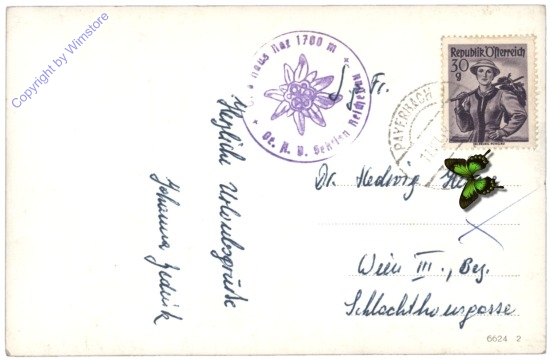 Copyright by Wimstore
Haus Rax 1700 m
Oe. A. V. Sektion Reichenau
Republik Österreich
30
g
PAYERBACH
Herzliche Urlaubsgrüße
Johanna
Fr.
Dr. Hedwig
Wien III., Bez.
Schlachthausgasse
6624 2